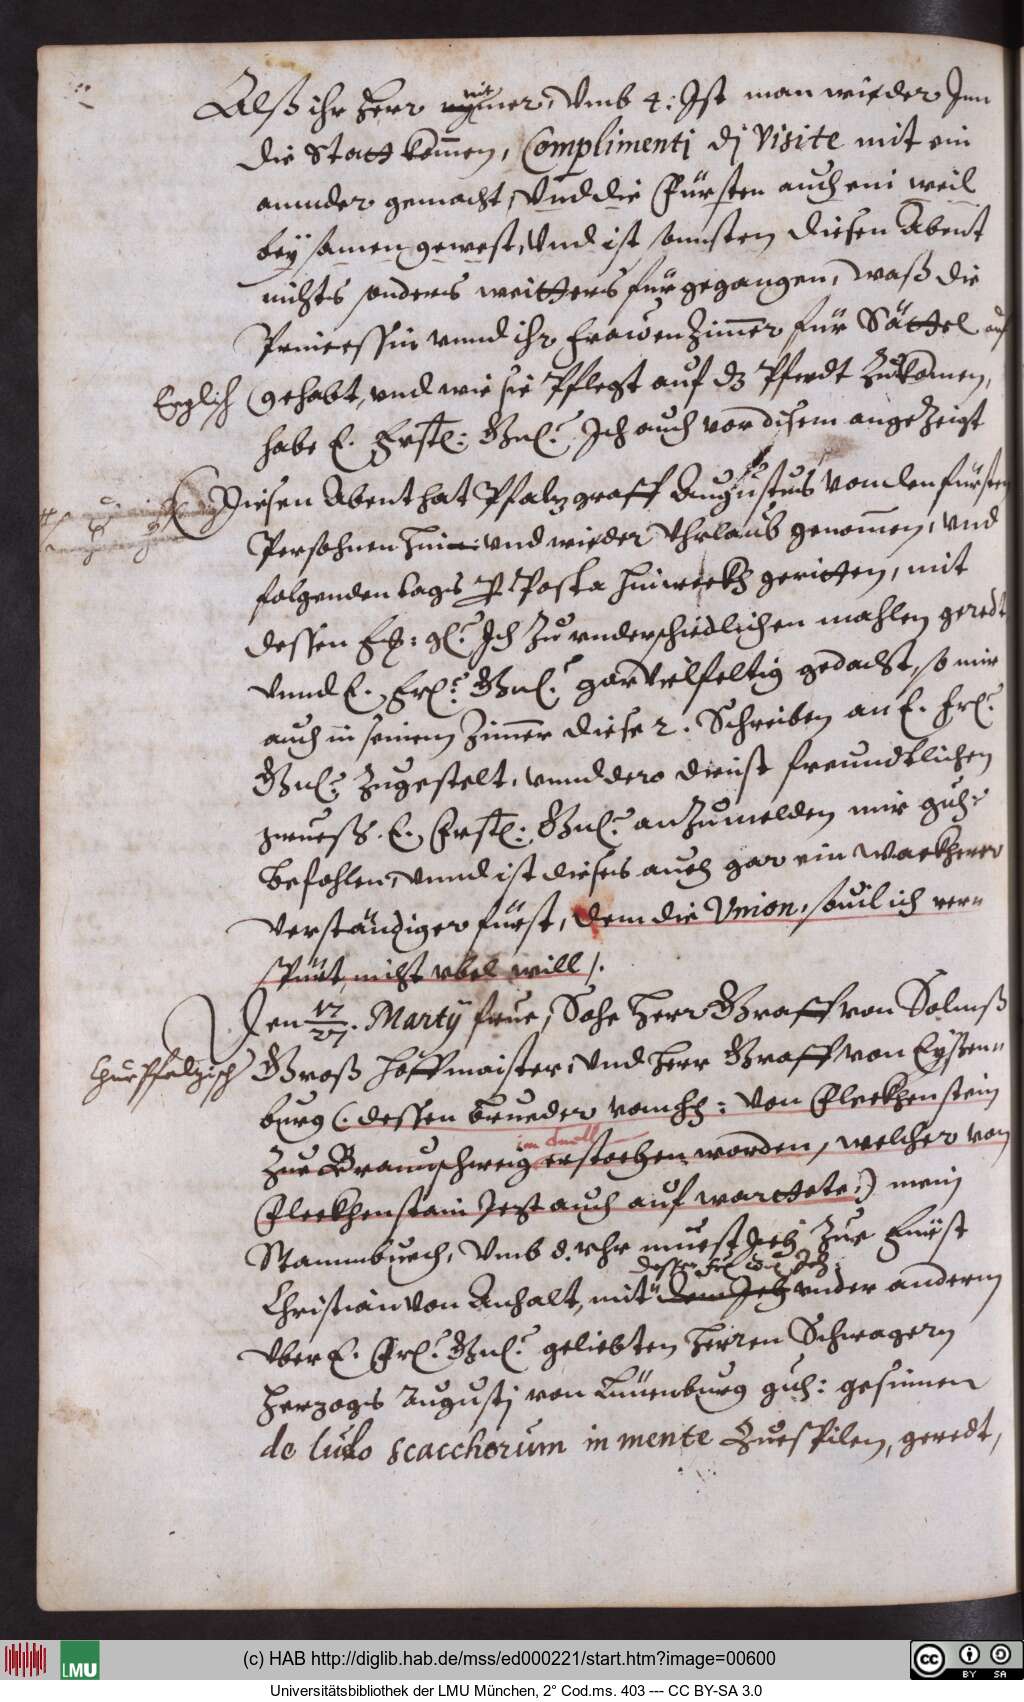 Alß ihr Herr nit immer, Vmb 4: Ist man wieder Inn
die Statt komen, Complimenti dj Visite mit ein
annder gemacht, Vnd die Fürsten auch ein weil
bey samen gewest, Vnd ist sonnsten diesen Abent
nichts sonders weitters für gegangen, waß die
Princessin vnnd ihr Frawen Zimmer für Sättel auf
Englisch
gehabt, vnd wie sie Pflegt auf dz Pferdt Zukomen,
habe E. Frstl: Gnl: Ich auch vor disem angeZeigt
Diesen Abent hat Pfaltzgraff Augustus von den fürsten
Persohnen hin: vnd wieder Vhrlaub genomen, vnd
folgenden tags P Posta hinweckh geritten, mit
dessen Ich Zu vnderschiedlichen mahlen geredt
Vnnd E. Frl: Gnl: gar Vilfeltig gedacht, so mir
auch in seinem Zimmer diese 2. Schreiben an E. Frl:
Gnl: Zugestelt, vnnd dero dienst freundtlichen
grueß E. Frstl: Gnl: anZumelden mir
befohlen, Vnnd ist dieses auch gar ein wackherer
Verständiger fürst, dem die Vnion, souil ich ver
spürt, nicht vbel will /.
Den 17/27. Martij frue, Sahe Herr Graff von Solmß
Churpfaltzisch
Groß Hoffmaister, vnd Herr Graff von Eysen
burg (: dessen brueder von H: von Fleckhenstein
im duell
Zue Braunschweig erstochen worden, welcher von
Fleckhenstain Jezt auch auf warttete:) mein
Stammbuech, Vmb 8. vhr muest Ich Zue Fürst
dessen Frl: Gnl: Ich
Christian von Anhalt, mit dem Ich vnder anderm
Vber E. Frl: Gnl: geliebten Herren Schwagern
Herzogs Augustj von Lüneburg gnd: gesinnen
de ludo scacchorum in mente Zuespilen, geredt,
(c) HAB http://diglib.hab.de/mss/ed000221/start.htm?image=00600
LMU
cc BY SA
Universitätsbibliothek der LMU München, 2° Cod.ms. 403 --- CC BY-SA 3.0